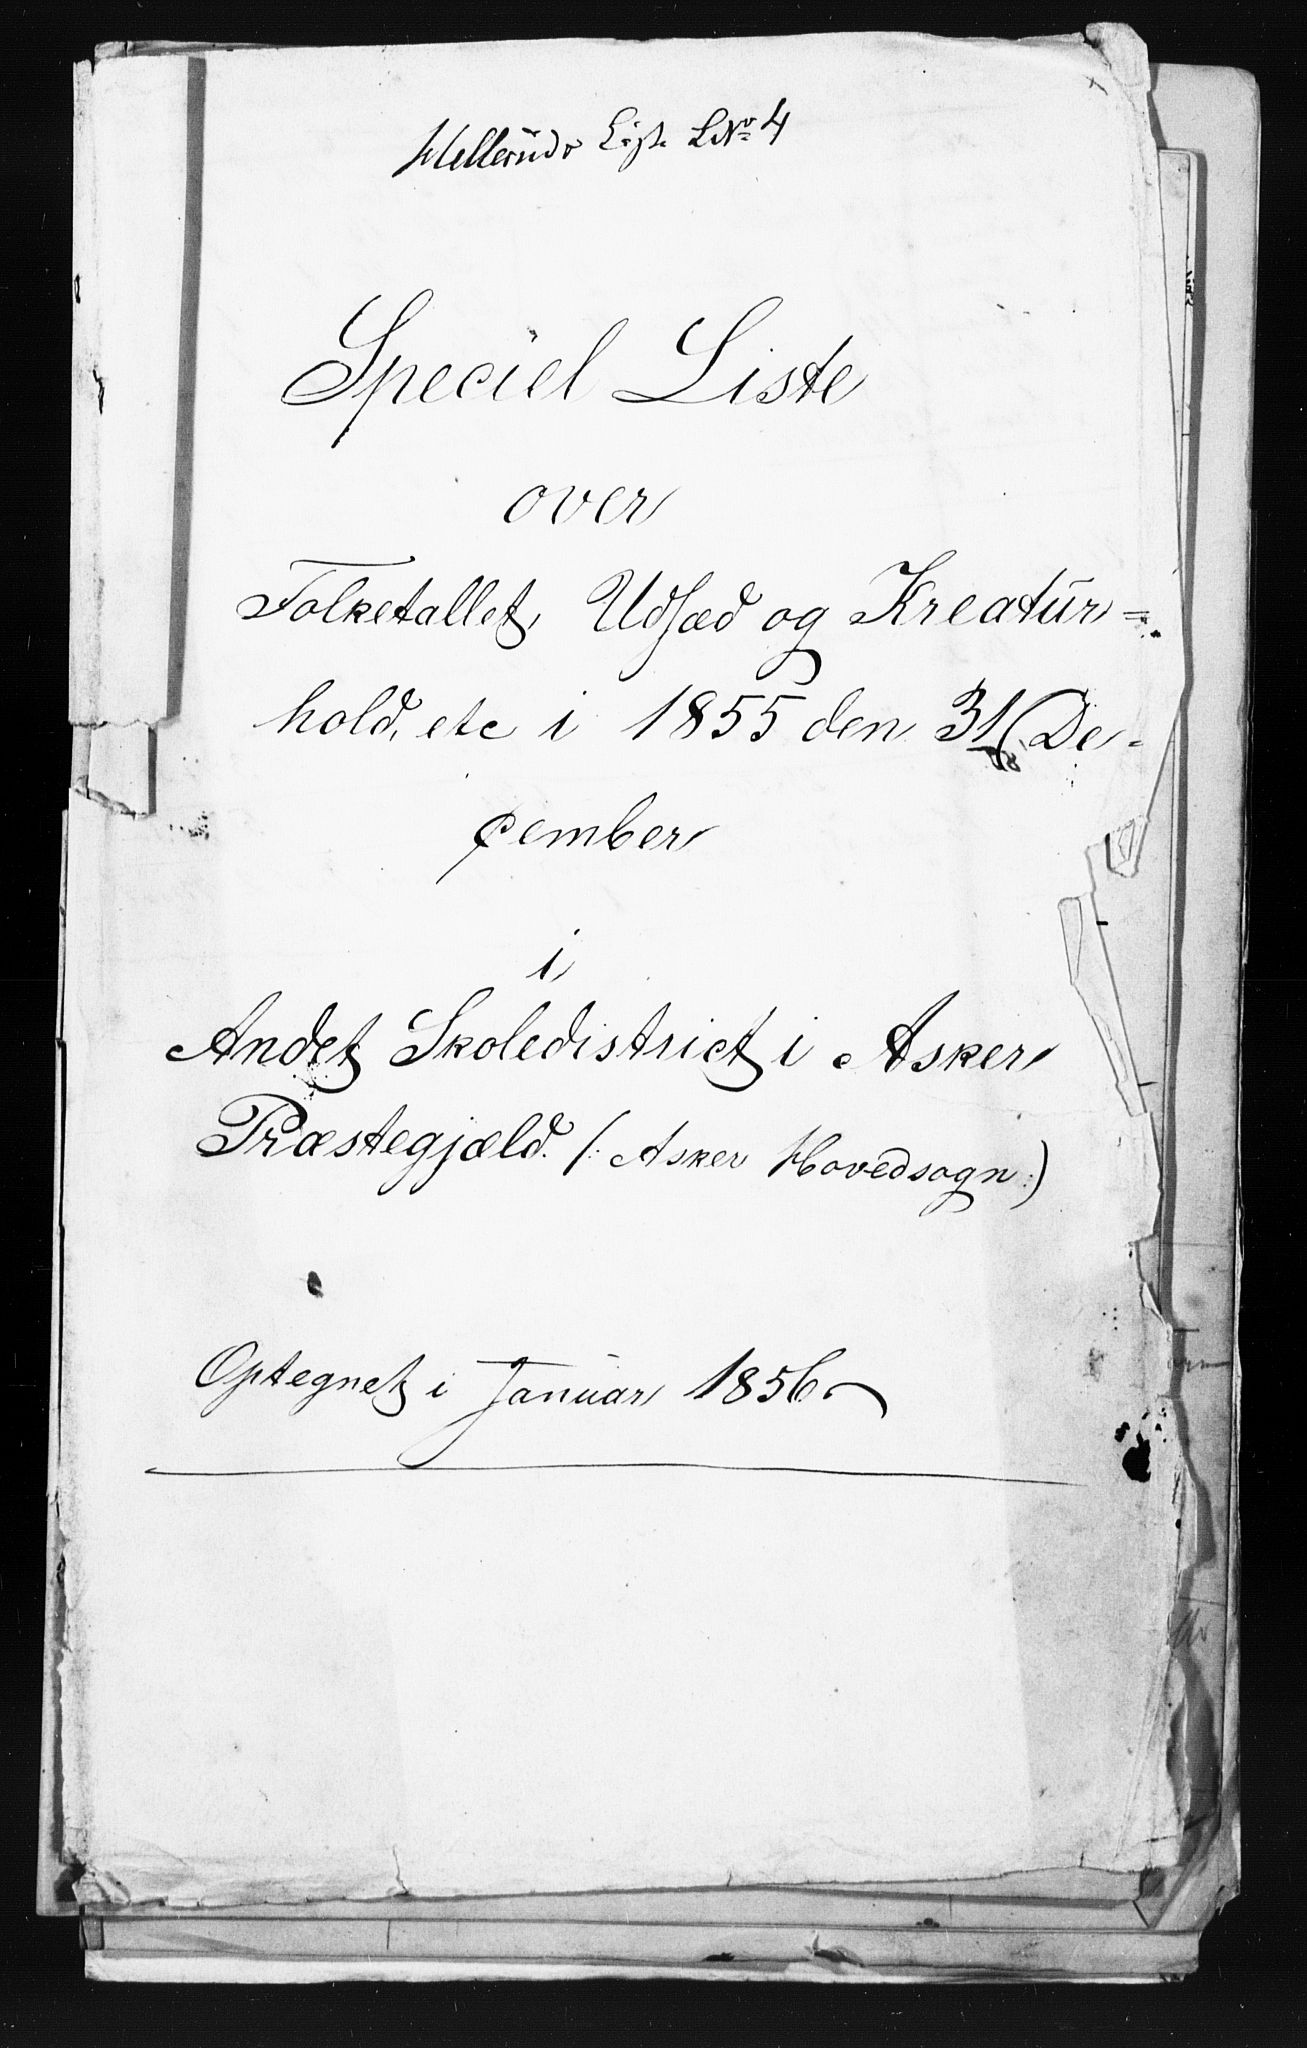 Hellerüds List. LNo 4
Speciel Liste
over
Folketallet, Udsæd og Kreatür=
hold, etc i 1855 den 31 De-
cember
i
Andet Skoledistrict i Asker
Præstegjæld. (: Asker Hovedsogn :)
Optegnet i Janüar 1856